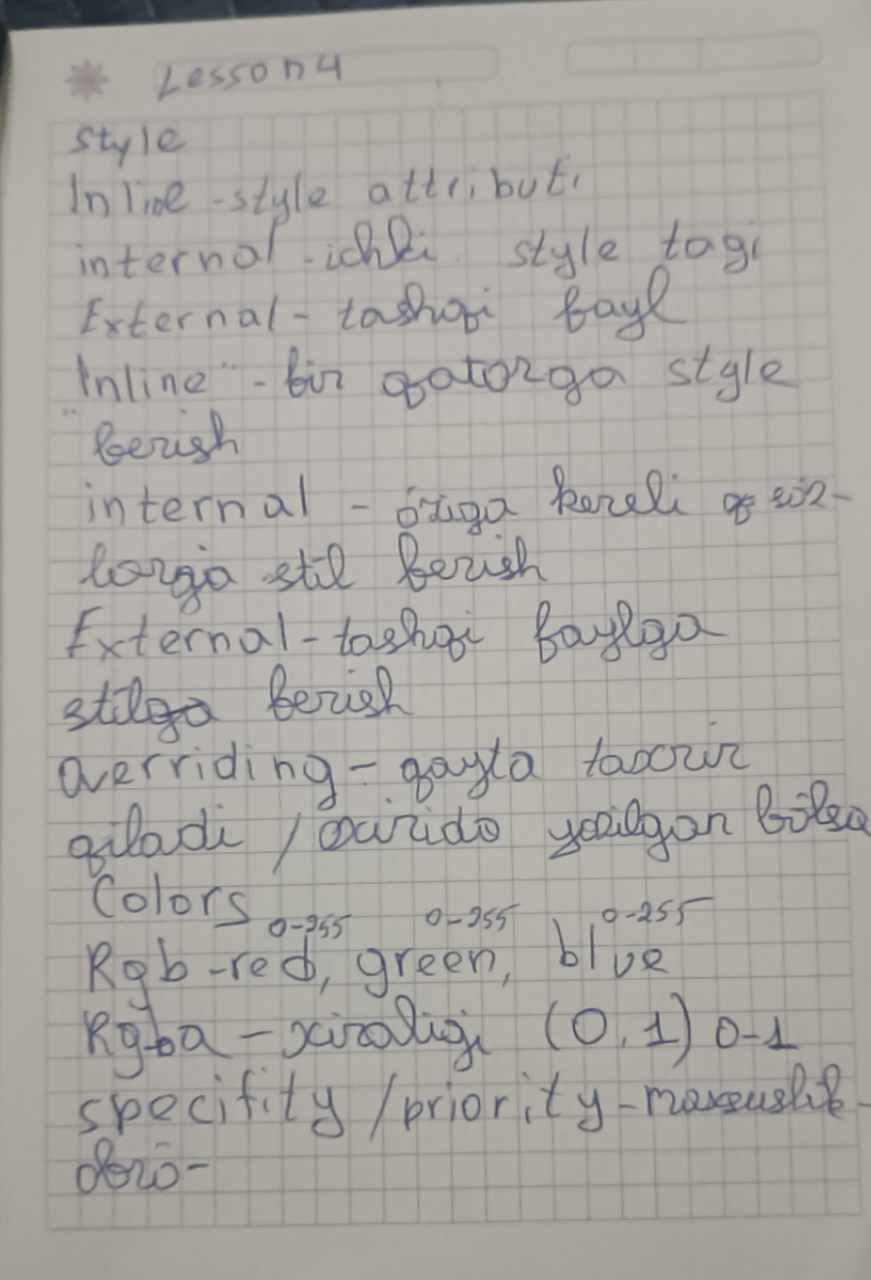 Lesson 4
style
Inline - style attributi
internal - ichki style tagi
External - tashqi fayl
"Inline" - bir qatorga style
berish
internal - o'ziga kereli so'z-
larga stil berish
External - tashqi faylga
stilga berish
Overriding - qayta taxrir
qiladi / oxirida yozilgan bo'lsa
Colors
0-255 0-255 0-255
Rgb - red, green, blue
Rgba - xiraligi (0,1) 0-1
specifity / priority - maxsuslik -
obro-